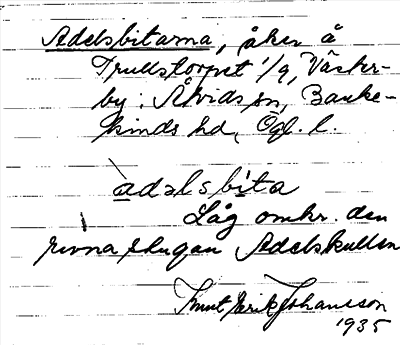 Adelsbitarna, åker å
Trullstorpet 1/9, Väster-
by. Åtvids sn, Banke-
kinds hd, Ögl. l.
àdəlsbíta
Låg omkr. den
rivna stugan Adelskullen
Knut Erik Johansson
1935